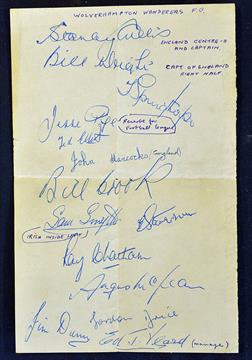 WOLVERHAMPTON WANDERERS F.C.
Stanley Cullis
ENGLAND CENTRE-H
AND CAPTAIN.
Bill Wright
CAPT OF ENGLAND
RIGHT HALF.
Jesse Pye
Football League
Ted Elliott
John Hancocks (England)
Bill Crook
Sam Smyth
IRISH INSIDE
Ray Chatham
Angus McLean
Jim Dunn